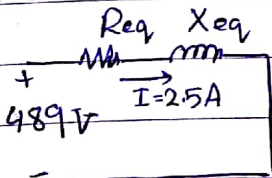 Req Xeq
+
I=2.5A
489V
-